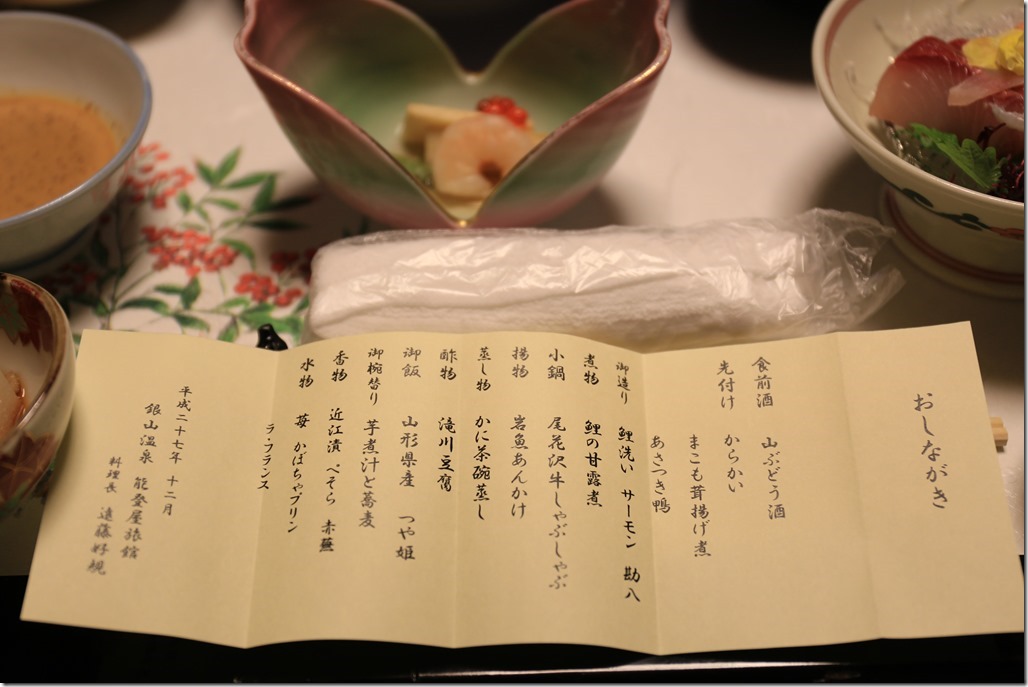 おしながき
食前酒　山ぶどう酒
先付け　からかい
まこも茸揚げ煮
あさつき鴨
御造り　鯉洗い　サーモン　勘八
煮物　鯉の甘露煮
小鍋　尾花沢牛しゃぶしゃぶ
揚物　岩魚あんかけ
蒸し物　かに茶碗蒸し
酢物　滝川豆腐
御飯　山形県産　つや姫
御椀替り　芋煮汁と蕎麦
香物　近江漬　ぺそら　赤蕪
水物　苺　かぼちゃプリン
ラ・フランス
平成二十七年　十二月
銀山温泉　能登屋旅館
料理長　遠藤好規